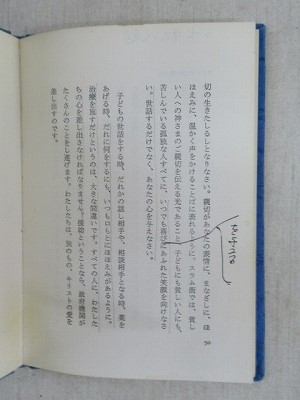 切の生きたしるしとなりなさい。親切があなたの表情に、まなざしに、ほ
ほえみに、温かく声をかけることばに表れるように。スラム街では、貧し
い人への神さまのご親切を伝える光であること、子どもにも貧しい人にも、
苦しんでいる孤独な人すべてに、いつでも喜びあふれた笑顔を向けなさ
い。世話するだけでなく、あなたの心を与えなさい。
子どもの世話をする時、だれかの話し相手や、相談相手となる時、薬を
あげる時、だれに何をするにも、いつも口もとにほほえみがあるように。
治療を施すだけというのは、大きな間違いです。すべての人に、わたした
ちの心を差し出さなければなりません。援助ということなら、政府機関が
たくさんのことをし遂げます。わたしたちは、別のもの、キリストの愛を
差し出すのです。
50